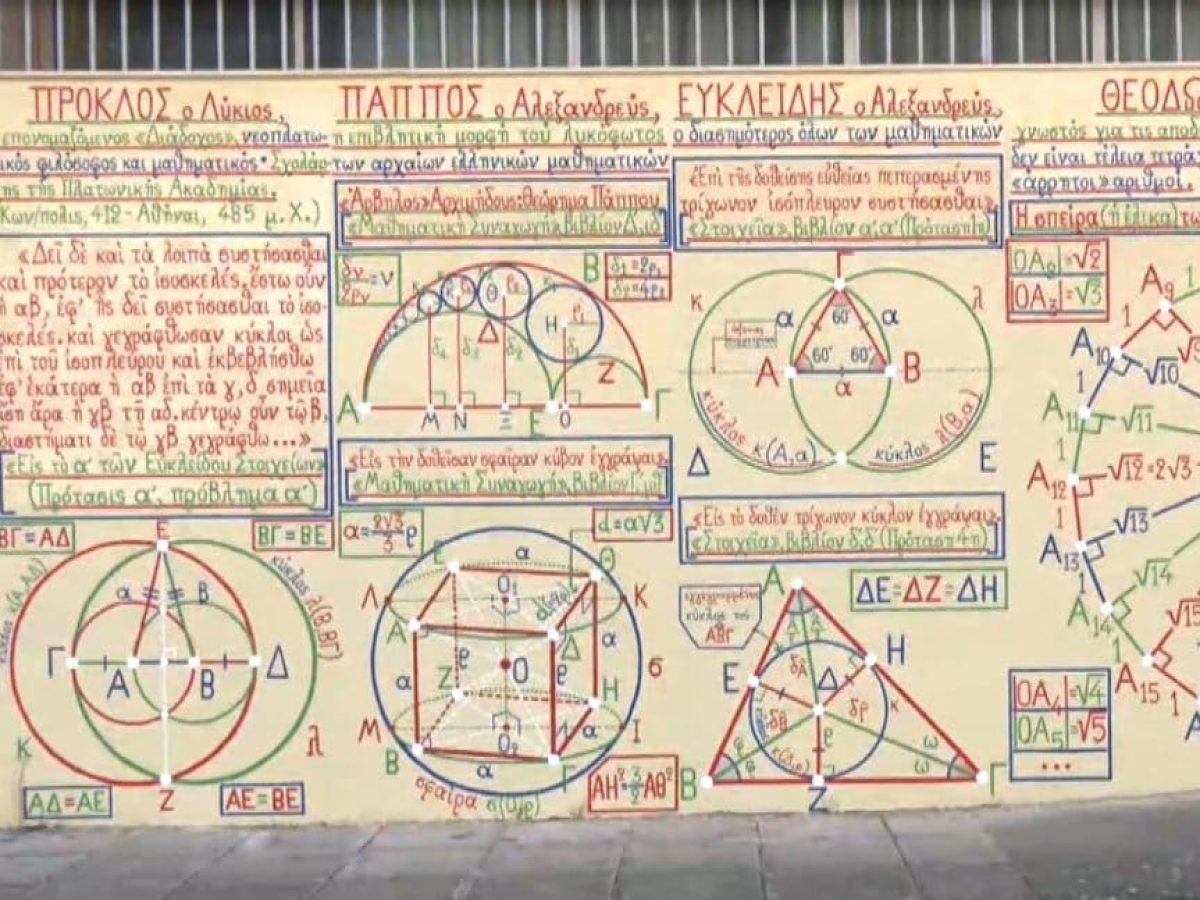 ΠΡΟΚΛΟΣ ο Λύκιος,
επονομαζόμενος «Διάδοχος», νεοπλατω-
ικός φιλόσοφος και μαθηματικός· Σχολάρ-
ης της Πλατωνικής Ακαδημίας.
Κων/πολις, 412 - Αθήναι, 485 μ.Χ.)
«Δεῖ δὲ καὶ τὰ λοιπὰ συστήσασθαι
καὶ πρότερον τὸ ἰσοσκελές. ἔστω οὖν
ἡ αβ, ἐφ' ἧς δεῖ συστήσασθαι τὸ ἰσο-
σκελές. καὶ γεγράφθωσαν κύκλοι ὡς
ἐπὶ τοῦ ἰσοπλεύρου καὶ ἐκβεβλήσθω
ἐφ' ἑκάτερα ἡ αβ ἐπὶ τὰ γ, δ σημεῖα
ἴση ἄρα ἡ γβ τῇ αδ. κέντρῳ οὖν τῷ β,
διαστήματι δὲ τῷ γβ γεγράφθω...»
«Εἰς τὸ α' τῶν Εὐκλείδου Στοιχείων»
(Πρότασις α', πρόβλημα α')
ΒΓ=ΑΔ
ΒΓ=ΒΕ
Ε
κύκλος κ(Α,ΑΔ)
κύκλος λ(Β,ΒΓ)
α
Β
Γ
Α
Β
Δ
κ
λ
Ζ
ΑΔ=ΑΕ
ΑΕ=ΒΕ
ΠΑΠΠΟΣ ο Αλεξανδρεύς,
η επιβλητική μορφή του λυκόφωτος
των αρχαίων ελληνικών μαθηματικών
«Ἄρβηλος» Ἀρχιμήδους: θεώρημα Πάππου
«Μαθηματικὴ Συναγωγή», Βιβλίον Δ', ιδ'
δν/2ρν=ν
Β
δ1=2ρ1
δ2=4ρ2
Θ
Η
ρ1
Δ
Ζ
δ4
δ3
δ2
δ1
Α
Μ
Ν
Ξ
Ε
Ο
Γ
«Εἰς τὴν δοθεῖσαν σφαῖραν κύβον ἐγγράψαι»
«Μαθηματικὴ Συναγωγή», Βιβλίον Γ'
α=2√3/3 ρ
d=α√3
Ε
α
Θ
Λ
Ο1
Κ
Α
Δ
α
ρ
Ο
ρ
α
σ
Ζ
Η
Μ
Ο2
α
Ι
Β
α
Γ
σφαῖρα σ(Ο,ρ)
ΑΗ²=3/2ΑΘ²
ΕΥΚΛΕΙΔΗΣ ο Αλεξανδρεύς,
ο διασημότερος όλων των μαθηματικών
«Ἐπὶ τῆς δοθείσης εὐθείας πεπερασμένης
τρίγωνον ἰσόπλευρον συστήσασθαι»
«Στοιχεῖα», Βιβλίον α', α' (Πρότασις 1η)
Γ
κ
λ
α
60°
α
Α
60°
60°
Β
α
κύκλος κ(Α,α)
κύκλος λ(Β,α)
Δ
Ε
«Εἰς τὸ δοθὲν τρίγωνον κύκλον ἐγγράψαι»
«Στοιχεῖα», Βιβλίον δ', δ' (Πρότασις 4η)
Α
ΔΕ=ΔΖ=ΔΗ
κύκλος τοῦ
ΑΒΓ
Η
Ε
Δ
κ
ρ
φ
φ
ω
ω
Β
Ζ
Γ
ΘΕΟΔΩ
γνωστός για τις αποδ
δεν είναι τέλεια τετρά
«άρρητοι» αριθμοί.
Η σπείρα (ή έλικα) το
ΟΑ2=√2
ΟΑ3=√3
Α9
1
Α10
√10
1
Α11
√11
1
Α12
√12=2√3
1
Α13
√13
1
Α14
√14
1
Α15
√15
1
ΟΑ4=√4
ΟΑ5=√5
...